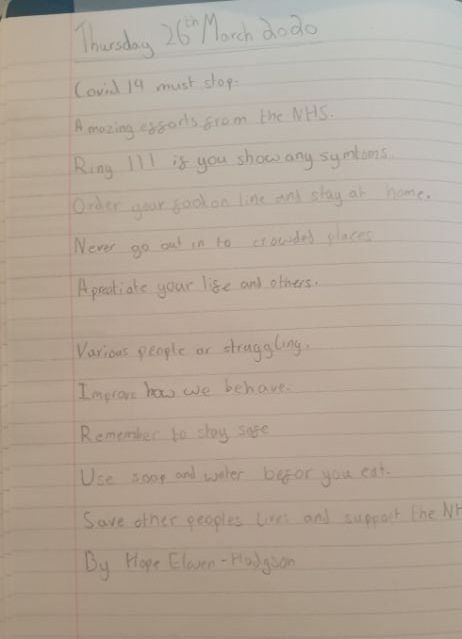 Thursday 26th March 2020
Covid 19 must stop.
Amazing efforts from the NHS.
Ring 111 if you show any symtoms.
Order your food on line and stay at home.
Never go out in to crowded places
Apreatiate your life and others.
Various people or struggling.
Improve how we behave.
Remember to stay safe
Use soap and water befor you eat.
Save other peoples lives and support the NH
By Hope -Hodgson